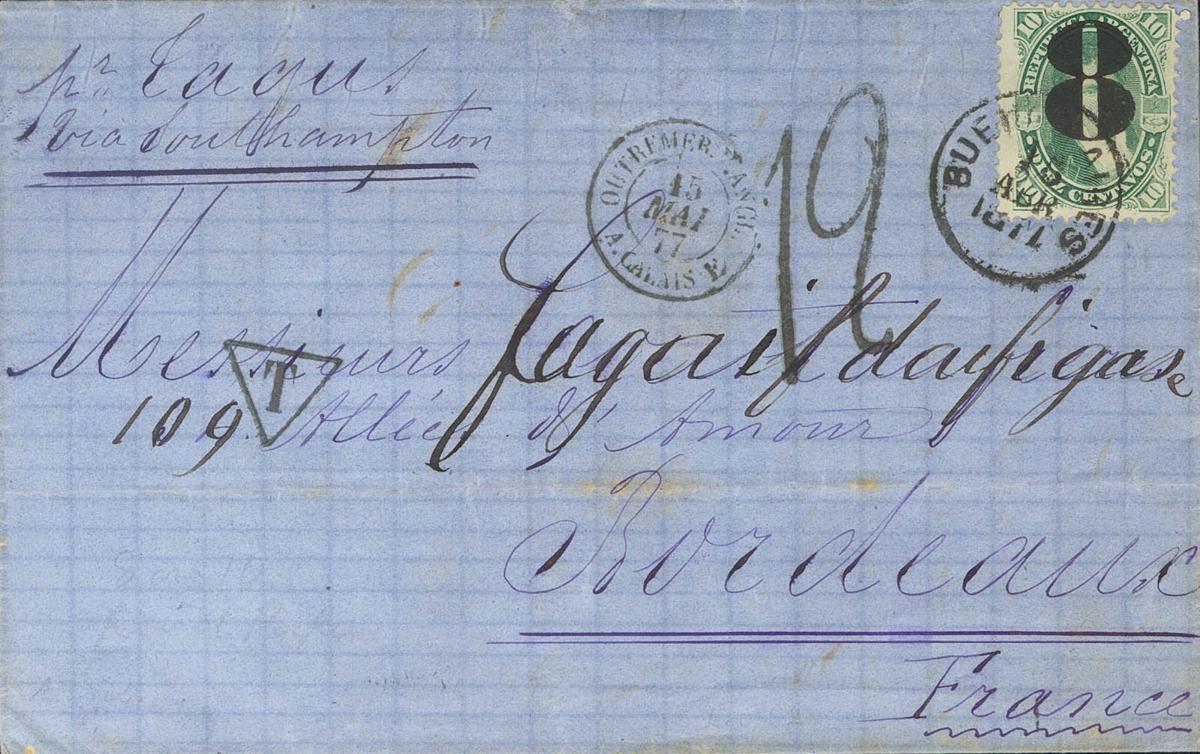 pr Tagus
via Southampton
10 10
REPUBLICA ARGENTINA
8
DIEZ CENTAVOS
10 10
BUENOS AIRES
ABR
1877
OUTREMER ANGL.
15
MAI
77
A. CALAIS
12
Messieurs
T
109 Allées d'Amour
Bordeaux
France